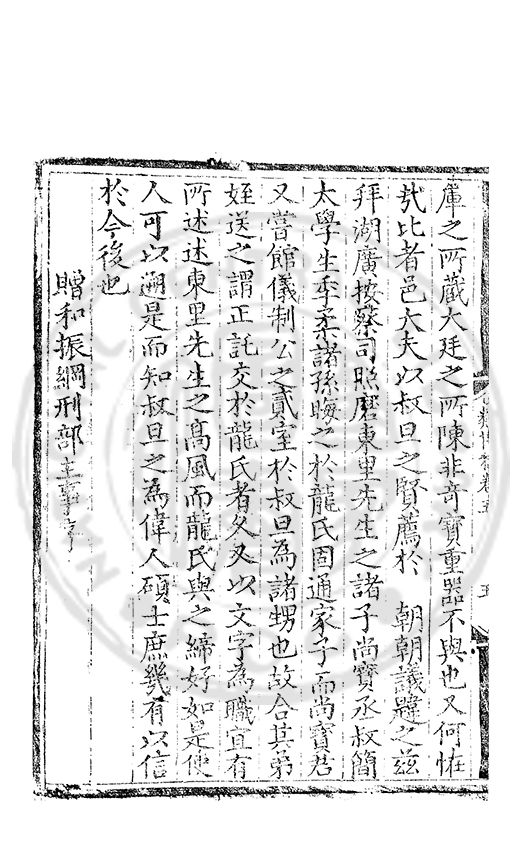 庫之所藏大廷之所陳非竒寳重器不與也又何恠
㢤比者邑大夫以叔旦之賢薦於　朝朝議韙之兹
拜湖廣按察司照磨東里先生之諸子尚寳丞叔簡
太學生季柔諸孫晦之於龍氏固通家子而尚寳君
又嘗館儀制公之貳室於叔旦為諸甥也故合其弟
姪送之謂正託交於龍氏者久又以文字為職宜有
所述述東里先生之高風而龍氏與之締好如是使
人可以遡是而知叔旦之為偉人碩士庶幾有以信
於今後也
贈和振綱刑部主事序